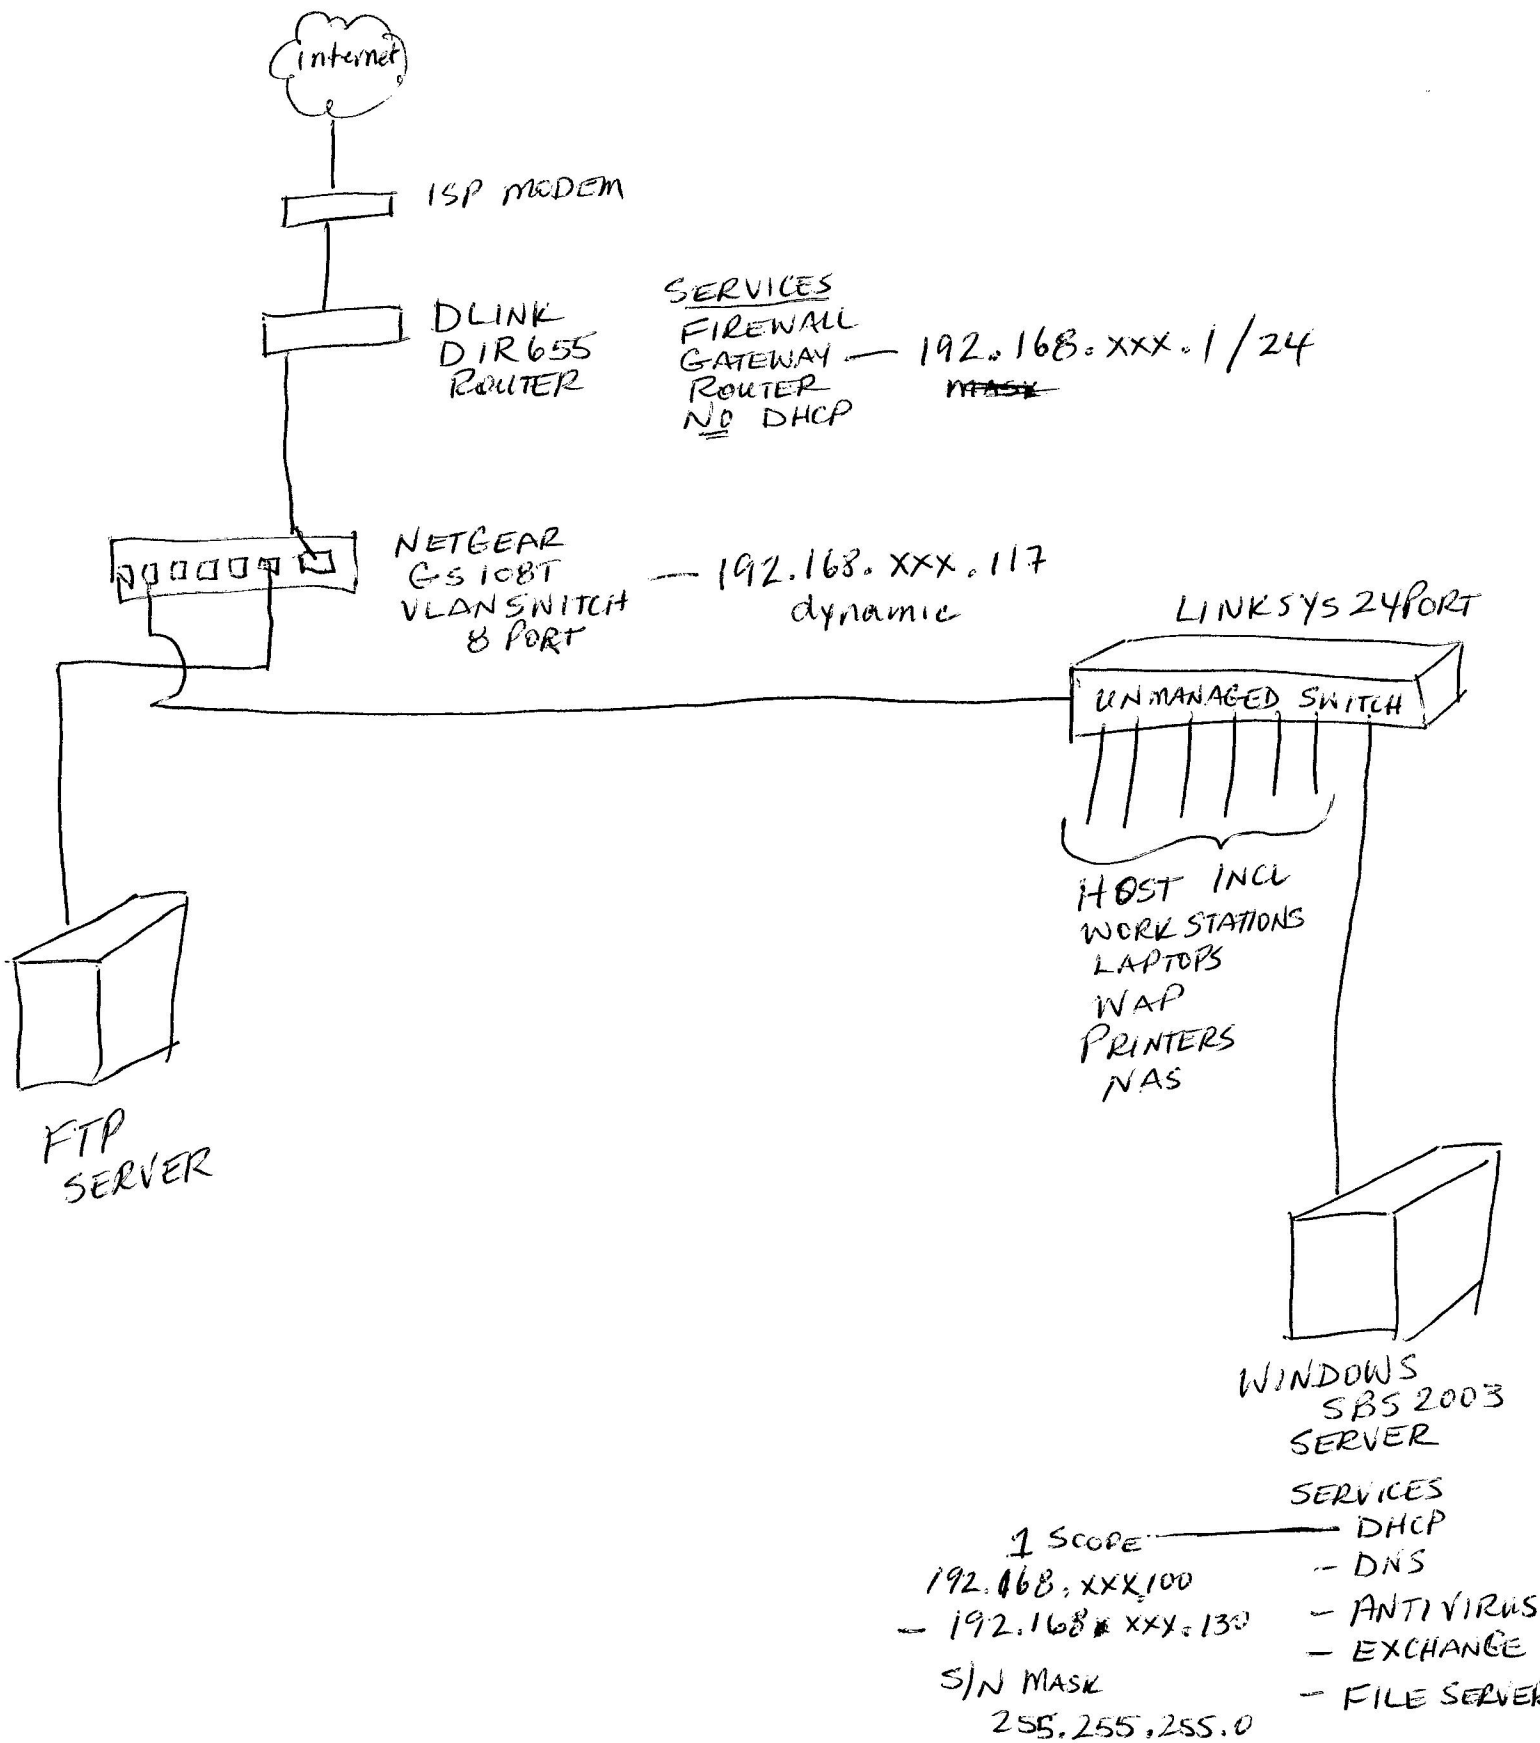 internet
ISP MODEM
DLINK
DIR655
ROUTER
SERVICES
FIREWALL
GATEWAY — 192.168.xxx.1/24
MASK
ROUTER
NO DHCP
NETGEAR
GS108T
VLAN SWITCH
8 PORT
— 192.168.xxx.117
dynamic
LINKSYS 24PORT
UNMANAGED SWITCH
HOST INCL
WORKSTATIONS
LAPTOPS
WAP
PRINTERS
NAS
FTP
SERVER
WINDOWS
SBS 2003
SERVER
SERVICES
1 SCOPE — DHCP
- DNS
- ANTIVIRUS
- EXCHANGE
- FILE SERVER
192.168.xxx.100
- 192.168.xxx.130
S/N MASK
255.255.255.0